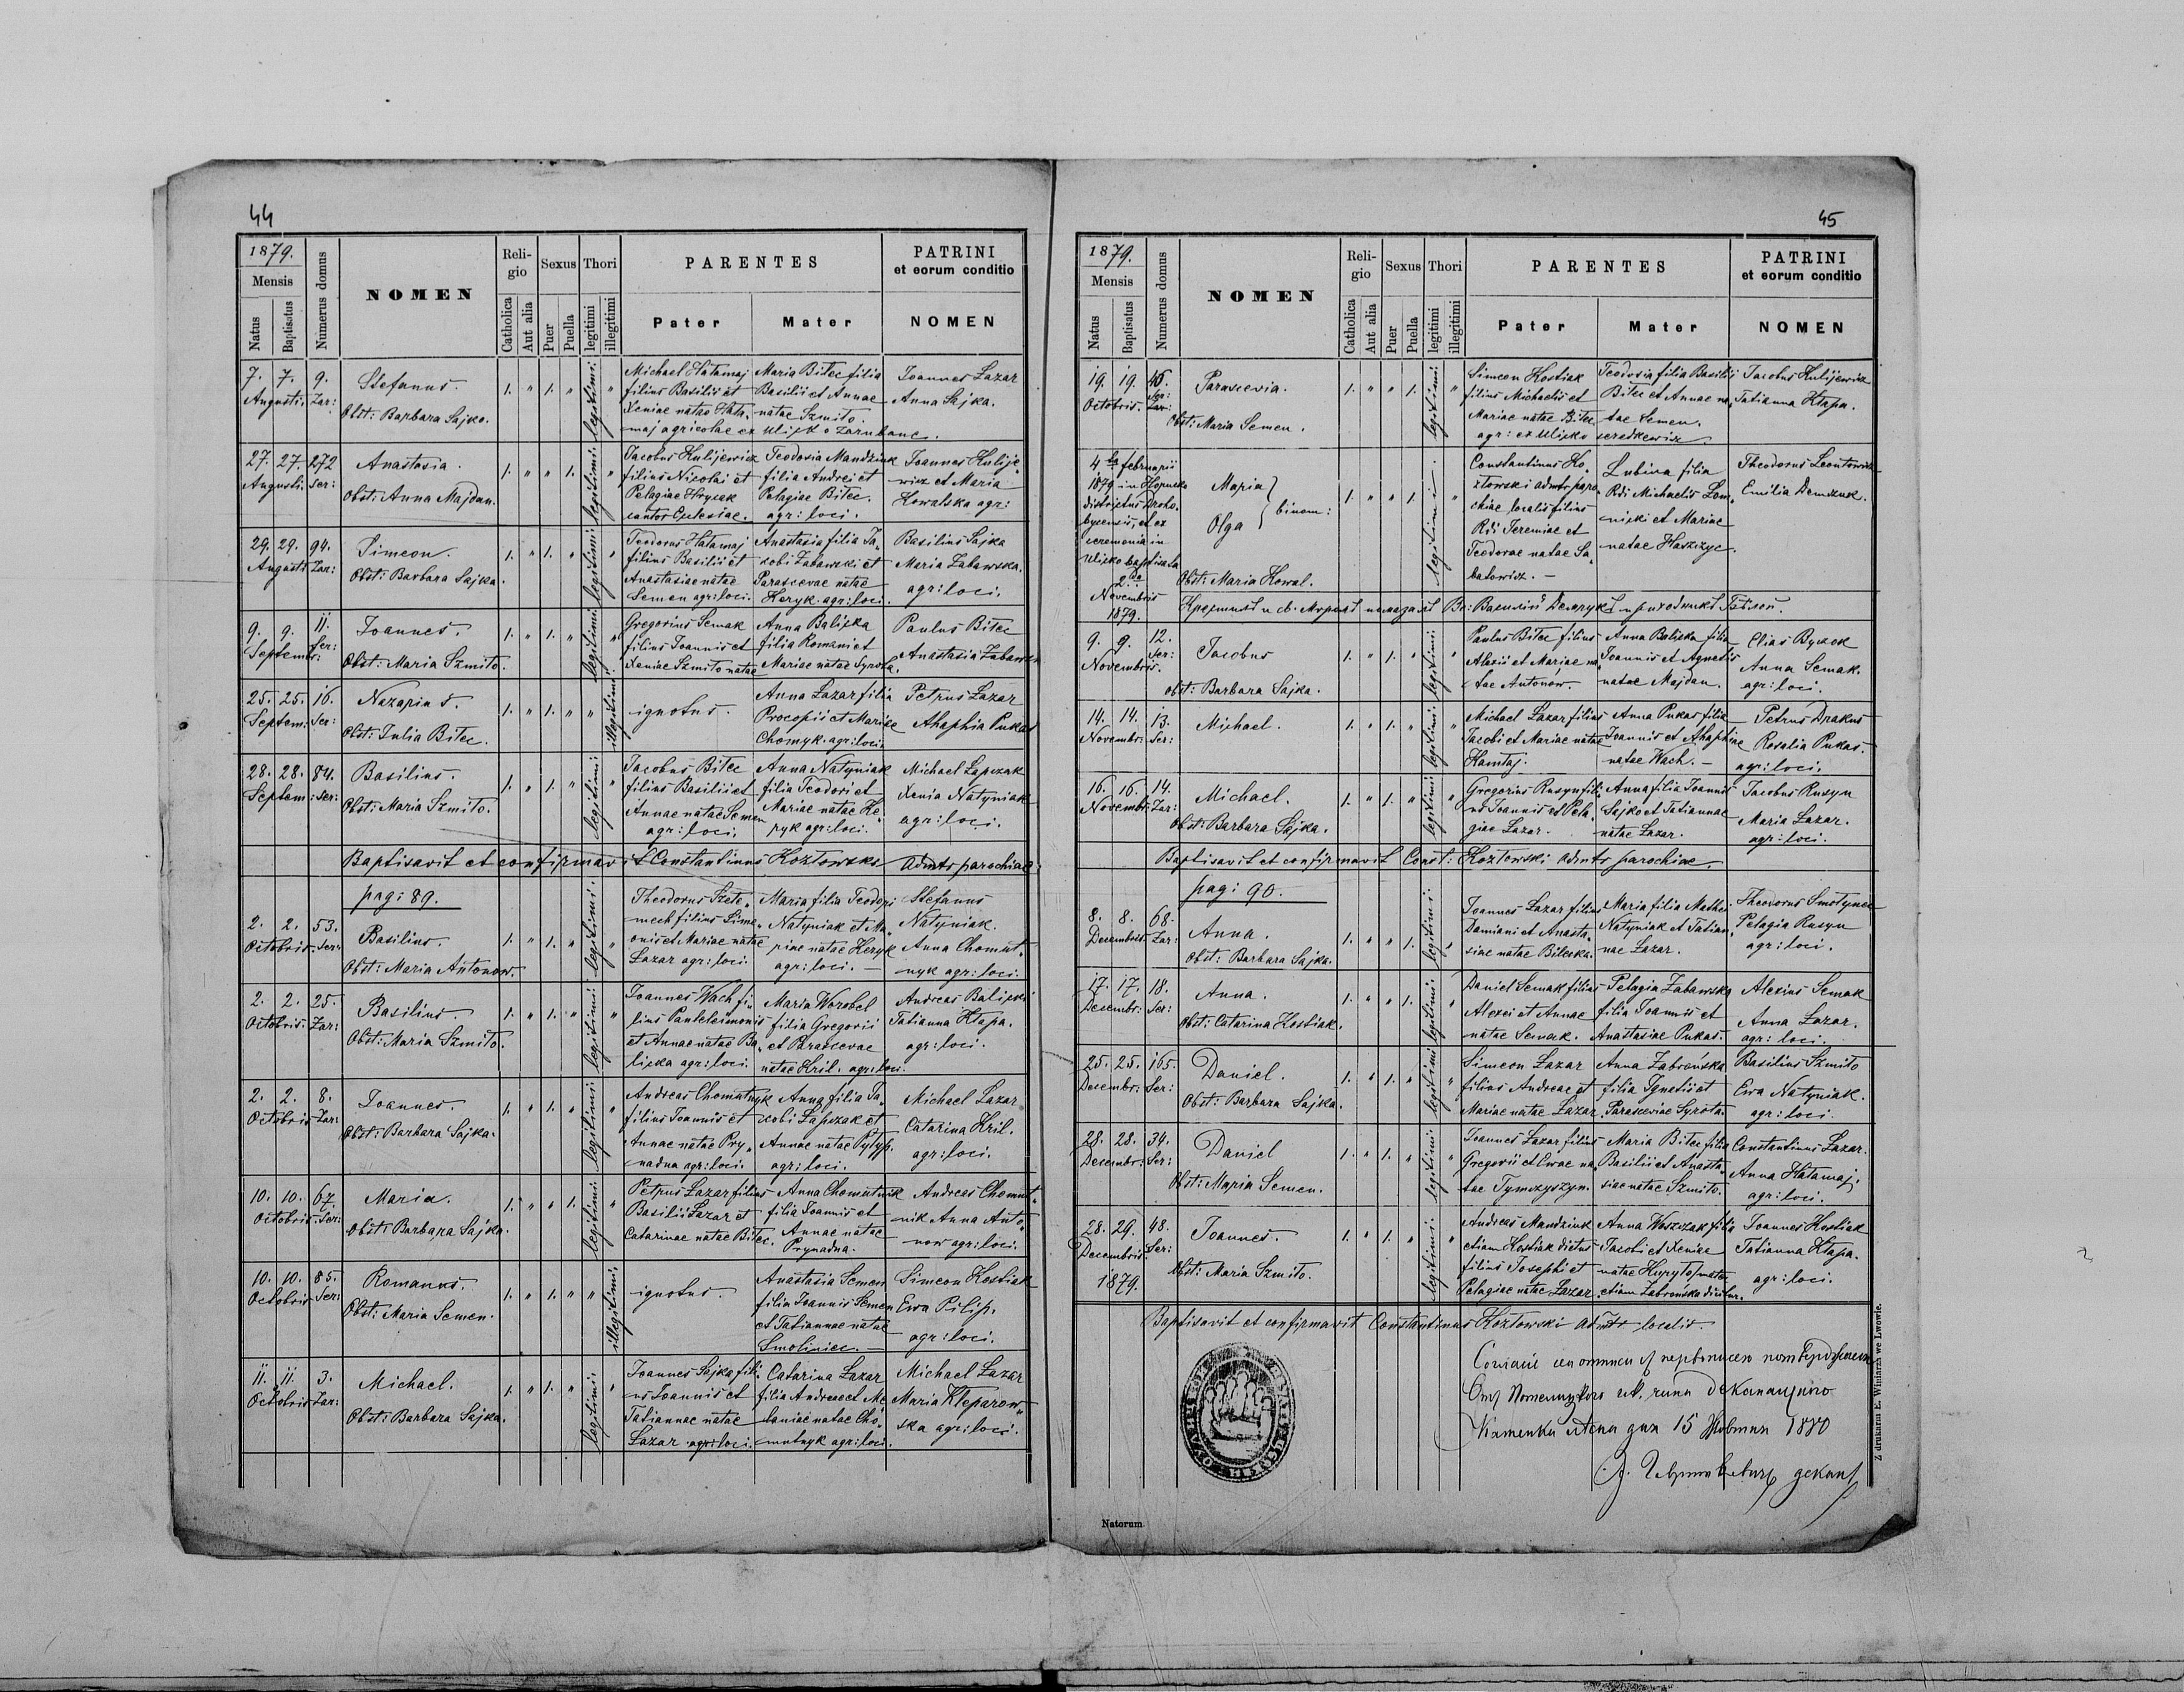 44
1879.
Mensis
Natus
Baptisatus
Numerus domus
NOMEN
Religio
Catholica
Aut alia
Sexus
Puer
Puella
Thori
legitimi
illegitimi
PARENTES
Pater
Mater
PATRINI
et eorum conditio
NOMEN
7. 7. 9.
Augusti. Zar:
Stefanus.
Obst: Barbara Sajko.
1. " 1. "
legitimi:
Michael Hatamaj
filius Basilii et
Xeniae natae Hata,
maj agricolae ex Uliczko Zarubane.
Maria Bitec filia
Basilii et Annae
natae Szmito.
Joannes Lazar
Anna Sajka.
27. 27. 272
Augusti. Ser:
Anastasia.
Obst: Anna Majdan.
1. " " 1.
legitimi:
Jacobus Kulijewicz
filius Nicolai et
Pelagiae Hrycak
cantor Eclesiae.
Teodosia Mandziuk
filia Andrei et
Pelagiae Bitec.
agr: loci.
Joannes Kulije„
wicz et Maria
Kowalska agr:
29. 29. 94.
Augusti Zar:
Simeon.
Obst: Barbara Sajka.
1. " 1. "
legitimi:
Teodorus Hatamaj
filius Basilii et
Anastasiae natae
Semen agr: loci.
Anastasia filia Ja„
cobi Zabawski et
Parascevae natae
Heryk. agr: loci.
Basilius Sajka
Maria Zabawska.
agr: loci.
9. 9. 11.
Septem: Ser:
Joannes.
Obst: Maria Szmito.
1. " 1. "
legitimi:
Gregorius Semak
filius Joannis et
Xeniae Szmito natae
Anna Balicka
filia Romani et
Mariae natae Syrota.
Paulus Bitec
Anastasia Zabawska
25. 25. 16.
Septem: Ser:
Nazarius.
Obst: Julia Bitec.
1. " 1. " "
illegitimi:
ignotus.
Anna Lazar filia
Procopii et Mariae
Chomyk. agr: loci.
Petrus Lazar
Ahaphia Pukas
28. 28. 84.
Septem: Ser:
Basilius.
Obst: Maria Szmito.
1. " 1. "
legitimi:
Jacobus Bitec
filius Basilii et
Annae natae Semen
agr: loci.
Anna Natyniak
filia Teodori et
Mariae natae He„
ryk agr: loci.
Michael Lapczak
Xenia Natyniak
agr: loci.
Baptisavit et confirmavit Constantinus Kozłowski Admtr parochiae:
pag: 89.
2. 2. 53.
Octobris. Ser:
Basilius.
Obst: Maria Antonow.
1. " 1. "
legitimi:
Theodorus Szere„
meth filius Sime„
onis et Mariae natae
Lazar agr: loci.
Maria filia Teodori
Natyniak et Ma„
riae natae Heryk
agr: loci. —
Stefanus
Natyniak.
Anna Chomut„
nyk agr: loci.
2. 2. 25.
Octobris. Zar:
Basilius.
Obst: Maria Szmito.
1. " 1. "
legitimi:
Joannes Wach fi„
lius Panteleimonis
et Annae natae Ba„
licka agr: loci.
Maria Worobel
filia Gregorii
et Parascevae
natae Kril. agr: loci.
Andreas Balicki
Tatianna Kłapa.
agr: loci.
2. 2. 8.
Octobris Zar:
Joannes.
Obst: Barbara Sajka.
1. " 1. "
legitimi:
Andreas Chomutnyk
filius Joannis et
Annae natae Pry„
nadna agr: loci.
Anna filia Ja„
cobi Lapczak et
Annae natae Pytyp.
agr: loci.
Michael Lazar
Catarina Kril.
agr: loci.
10. 10. 67.
Octobris Ser:
Maria.
Obst: Barbara Sajka.
1. " " 1.
legitimi:
Petrus Lazar filius
Basilii Lazar et
Catarinae natae Bitec.
Anna Chomutnik
filia Joannis et
Annae natae
Prynadna.
Andreas Chomut„
nik Anna Anto„
now agr: loci.
10. 10. 85.
Octobris Ser:
Romanus.
Obst: Maria Semen.
1. " 1. " "
illegitimi.
ignotus.
Anastasia Semen
filia Joannis Semen
et Tatiannae natae
Smoliniec. —
Simeon Kostiak
Ewa Pilip.
agr: loci.
11. 11. 3.
Octobris Zar:
Michael.
Obst: Barbara Sajka.
1. " 1. "
legitimi:
Joannes Sajka fili„
us Joannis et
Tatiannae natae
Lazar agr: loci.
Catarina Lazar
filia Andreae et Me
laniae natae Cho„
mutnyk agr: loci.
Michael Lazar
Maria Kleparow„
ska agr: loci.
45
1879.
Mensis
Natus
Baptisatus
Numerus domus
NOMEN
Religio
Catholica
Aut alia
Sexus
Puer
Puella
Thori
legitimi
illegitimi
PARENTES
Pater
Mater
PATRINI
et eorum conditio
NOMEN
19. 19. 46.
Octobris. Ser:
Parascevia.
Obst: Maria Semen.
1. " " 1.
legitimi:
Simeon Kostiak
filius Michaelis et
Mariae natae Bitec
agr: ex Uliczko seredkewicz
Teodosia filia Basilii
Bitec et Annae na„
tae Semen.
Jacobus Kulijewicz
Tatianna Kłapa.
4 ta februarii
1879 in Hopucko
districtus Droho„
bycensis, et ex
ceremonia in
Uliczko baptisata
2 da
Novembris
1879.
Maria
Olga
binom:
Obst: Maria Kowal.
1. " " 1.
legitimi:
Constantinus Ko„
złowski admtr paro„
chiae localis filius
Rdi Jeremiae et
Teodorae natae Sa„
batowicz. —
Lubina filia
Rdi Michaelis Lom„
nicki et Mariae
natae Haszczyc.
Theodorus Leontowicz
Emilia Demczuk.
9. 9. 12.
Novembris. Ser:
Jacobus
obst: Barbara Sajka.
1. " 1. "
legitimi:
Paulus Bitec filius
Alexii et Mariae na„
tae Antonów.
Anna Balicka filia
Joannis et Agnetis
natae Majdan.
Elias Byczok
Anna Semak.
agr: loci.
14. 14. 13.
Novembr: Ser:
Michael.
1. " 1. "
legitimi:
Michael Lazar filius
Jacobi et Mariae natae
Hamtaj.
Anna Pukas filia
Joannis et Ahaphiae
natae Wach. —
Petrus Drakus
Rosalia Pukas.
agr: loci.
16. 16. 14.
Novembr: Zar:
Michael.
Obst: Barbara Sajka.
1. " 1. "
legitimi:
Gregorius Rusyn fili„
us Joannis et Pela„
giae Lazar.
Anna filia Joannis
Sajko et Tatiannae
natae Lazar.
Jacobus Rusyn
Maria Lazar.
agr: loci.
Baptisavit et confirmavit Const: Kozłowski admtr parochiae.
pag: 90.
8. 8. 68.
Decembris. Zar:
Anna.
Obst: Barbara Sajka.
1. " " 1.
legitimi:
Joannes Lazar filius
Damiani et Anasta„
siae natae Bitecka.
Maria filia Mathei
Natyniak et Tatian„
nae Lazar.
Theodorus Smolynec
Pelagia Rusyn
agr: loci.
17. 17. 18.
Decembr: Ser:
Anna.
Obst: Catarina Kostiak.
1. " " 1.
legitimi:
Daniel Semak filius
Alexei et Annae
natae Semak.
Pelagia Zabawska
filia Joannis et
Anastasiae Pukas.
Alexius Semak
Anna Lazar.
agr: loci.
25. 25. 165.
Decembr: Ser:
Daniel.
Obst: Barbara Sajka.
1. " 1. "
legitimi
Simeon Lazar
filius Andreae et
Mariae natae Lazar
Anna Zabrońska
filia Ignatii et
Parasceviae Syrota.
Basilius Szmito
Ewa Natyniak.
agr: loci.
28. 28. 34.
Decembr: Ser:
Daniel
Obst: Maria Semen.
1. " 1. "
legitimi:
Joannes Lazar filius
Gregorii et Ewae na„
tae Tymczyszyn.
Maria Bitec filia
Basilii et Anasta„
siae natae Szmito.
Constantinus Lazar.
Anna Hatamaj.
agr: loci.
28. 29. 48.
Decembris. Ser:
1879.
Joannes.
Obst: Maria Szmito.
1. " 1. "
legitimi:
Andreas Mandziuk
etiam Kostiak dictus
filius Josephi et
Pelagiae natae Lazar.
Anna Woszczak filia
Jacobi et Xeniae
natae Kuryło/mater
etiam Zabrońska dicitur.
Joannes Kostiak
Tatianna Kłapa.
agr: loci.
Baptisavit et confirmavit Constantinus Kozłowski admtr localis.
дня 15 Жовтня 1880
декан
Natorum
Z drukarni E. Winiarza we Lwowie.